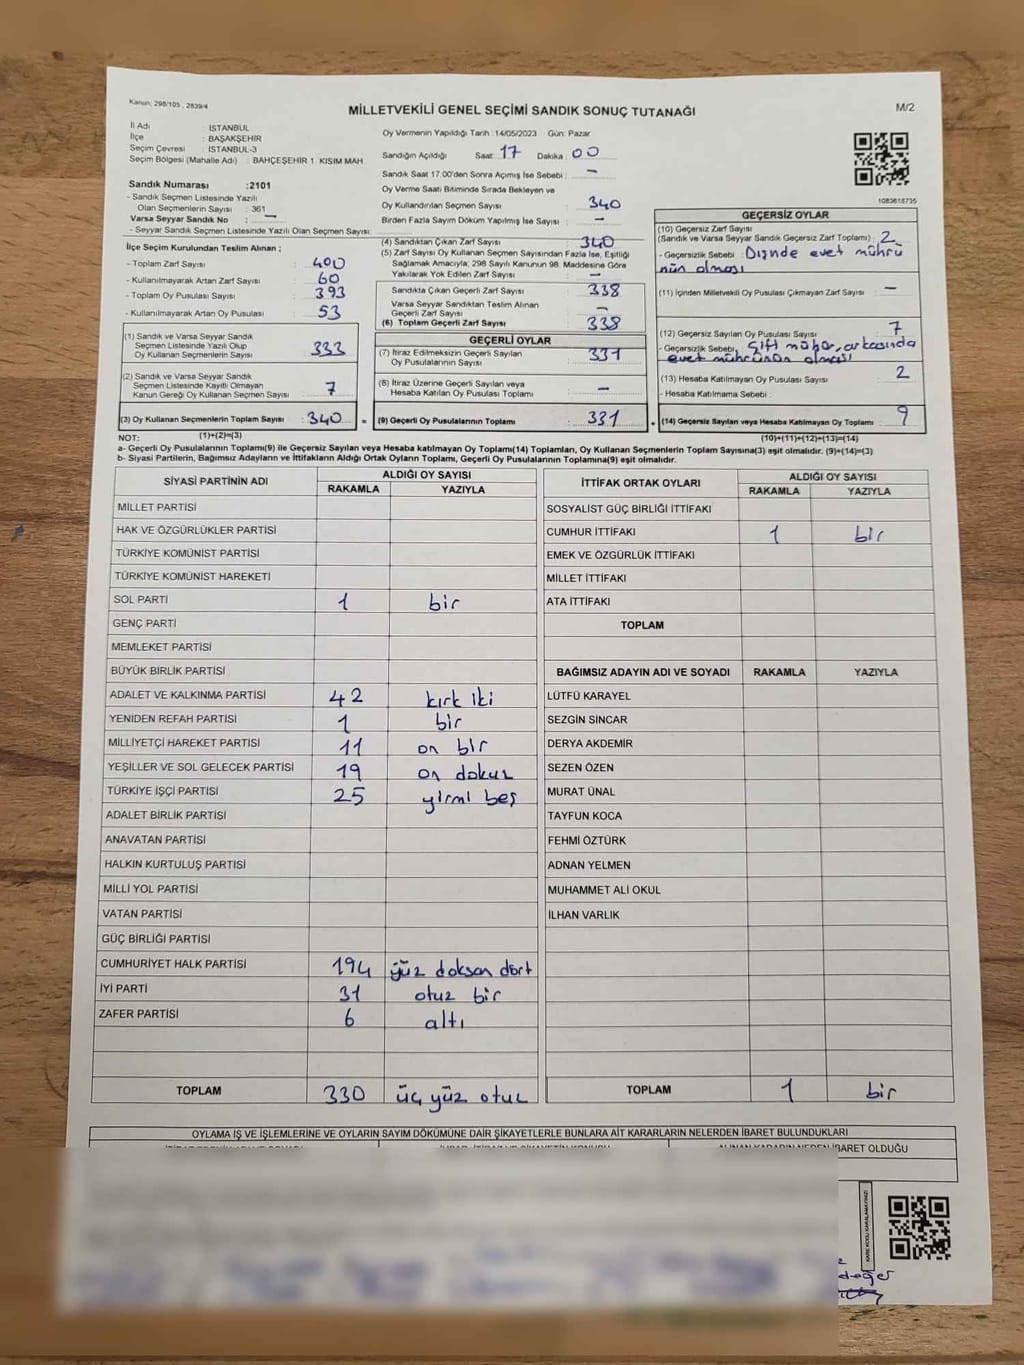 Kanun, 298/105 , 2839/4
MİLLETVEKİLİ GENEL SEÇİMİ SANDIK SONUÇ TUTANAĞI
M/2
İl Adı : İSTANBUL
İlçe : BAŞAKŞEHİR
Seçim Çevresi : İSTANBUL-3
Seçim Bölgesi (Mahalle Adı) : BAHÇEŞEHİR 1. KISIM MAH.
Sandık Numarası :2101
- Sandık Seçmen Listesinde Yazılı
Olan Seçmenlerin Sayısı : 361
Varsa Seyyar Sandık No : —
- Seyyar Sandık Seçmen Listesinde Yazılı Olan Seçmen Sayısı:
Oy Vermenin Yapıldığı Tarih :14/05/2023 Gün: Pazar
Sandığın Açıldığı Saat: 17 Dakika: 00
Sandık Saat 17.00'den Sonra Açımış İse Sebebi : —
Oy Verme Saati Bitiminde Sırada Bekleyen ve
Oy Kullandırılan Seçmen Sayısı : 340
Birden Fazla Sayım Döküm Yapılmış İse Sayısı : —
1083618735
İlçe Seçim Kurulundan Teslim Alınan ;
- Toplam Zarf Sayısı : 400
- Kullanılmayarak Artan Zarf Sayısı : 60
- Toplam Oy Pusulası Sayısı : 393
- Kullanılmayarak Artan Oy Pusulası : 53
(1) Sandık ve Varsa Seyyar Sandık
Seçmen Listesinde Yazılı Olup
Oy Kullanan Seçmenlerin Sayısı : 333
(2) Sandık ve Varsa Seyyar Sandık
Seçmen Listesinde Kayıtlı Olmayan
Kanun Gereği Oy Kullanan Seçmen Sayısı : 7
(3) Oy Kullanan Seçmenlerin Toplam Sayısı : 340
(4) Sandıktan Çıkan Zarf Sayısı : 340
(5) Zarf Sayısı Oy Kullanan Seçmen Sayısından Fazla İse, Eşitliği
Sağlamak Amacıyla, 298 Sayılı Kanunun 98. Maddesine Göre
Yakılarak Yok Edilen Zarf Sayısı : —
Sandıkta Çıkan Geçerli Zarf Sayısı : 338
Varsa Seyyar Sandıktan Teslim Alınan
Geçerli Zarf Sayısı : —
(6) Toplam Geçerli Zarf Sayısı : 338
GEÇERLİ OYLAR
(7) İtiraz Edilmeksizin Geçerli Sayılan
Oy Pusulalarının Sayısı : 331
(8) İtiraz Üzerine Geçerli Sayılan veya
Hesaba Katılan Oy Pusulaları Toplamı : —
= (9) Geçerli Oy Pusulalarının Toplamı : 331 +
GEÇERSİZ OYLAR
(10) Geçersiz Zarf Sayısı
(Sandık ve Varsa Seyyar Sandık Geçersiz Zarf Toplamı) : 2
- Geçersizlik Sebebi : Dışında evet mührü
nün olması
(11) İçinden Milletvekili Oy Pusulası Çıkmayan Zarf Sayısı : —
(12) Geçersiz Sayılan Oy Pusulası Sayısı : 7
- Geçersizlik Sebebi : Çift mühür, arkasında
evet mührünün olması
(13) Hesaba Katılmayan Oy Pusulası Sayısı : 2
- Hesaba Katılmama Sebebi :
(14) Geçersiz Sayılan veya Hesaba Katılmayan Oy Toplamı : 9
NOT: (1)+(2)=(3) (10)+(11)+(12)+(13)=(14)
a- Geçerli Oy Pusulalarının Toplamı(9) ile Geçersiz Sayılan veya Hesaba katılmayan Oy Toplamı(14) Toplamları, Oy Kullanan Seçmenlerin Toplam Sayısına(3) eşit olmalıdır. (9)+(14)=(3)
b- Siyasi Partilerin, Bağımsız Adayların ve İttifakların Aldığı Ortak Oyların Toplamı, Geçerli Oy Pusulalarının Toplamına(9) eşit olmalıdır.
SİYASİ PARTİNİN ADI ALDIĞI OY SAYISI
RAKAMLA YAZIYLA
MİLLET PARTİSİ
HAK VE ÖZGÜRLÜKLER PARTİSİ
TÜRKİYE KOMÜNİST PARTİSİ
TÜRKİYE KOMÜNİST HAREKETİ
SOL PARTİ 1 bir
GENÇ PARTİ
MEMLEKET PARTİSİ
BÜYÜK BİRLİK PARTİSİ
ADALET VE KALKINMA PARTİSİ 42 kırk iki
YENİDEN REFAH PARTİSİ 1 bir
MİLLİYETÇİ HAREKET PARTİSİ 11 on bir
YEŞİLLER VE SOL GELECEK PARTİSİ 19 on dokuz
TÜRKİYE İŞÇİ PARTİSİ 25 yirmi beş
ADALET BİRLİK PARTİSİ
ANAVATAN PARTİSİ
HALKIN KURTULUŞ PARTİSİ
MİLLİ YOL PARTİSİ
VATAN PARTİSİ
GÜÇ BİRLİĞİ PARTİSİ
CUMHURİYET HALK PARTİSİ 194 yüz doksan dört
İYİ PARTİ 31 otuz bir
ZAFER PARTİSİ 6 altı
TOPLAM 330 üç yüz otuz
İTTİFAK ORTAK OYLARI ALDIĞI OY SAYISI
RAKAMLA YAZIYLA
SOSYALİST GÜÇ BİRLİĞİ İTTİFAKI
CUMHUR İTTİFAKI 1 bir
EMEK VE ÖZGÜRLÜK İTTİFAKI
MİLLET İTTİFAKI
ATA İTTİFAKI
TOPLAM
BAĞIMSIZ ADAYIN ADI VE SOYADI RAKAMLA YAZIYLA
LÜTFÜ KARAYEL
SEZGİN SİNCAR
DERYA AKDEMİR
SEZEN ÖZEN
MURAT ÜNAL
TAYFUN KOCA
FEHMİ ÖZTÜRK
ADNAN YELMEN
MUHAMMET ALİ OKUL
İLHAN VARLIK
TOPLAM 1 bir
OYLAMA İŞ VE İŞLEMLERİNE VE OYLARIN SAYIM DÖKÜMÜNE DAİR ŞİKAYETLERLE BUNLARA AİT KARARLARIN NELERDEN İBARET BULUNDUKLARI
ALINAN KARARIN NEDEN İBARET OLDUĞU
KARE KODU KARALAMAYINIZ!